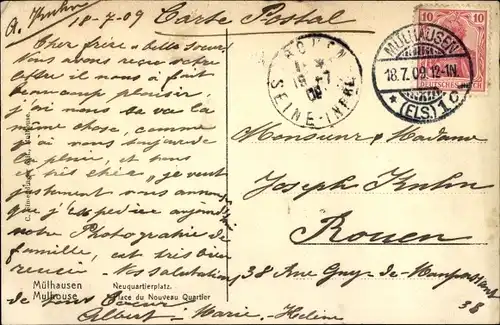 18-7-09 Carte Postal
A. Kuhn
Cher frère et belle soeur
nous avons reçu votre
lettre il nous a fait
beaucoup plaisir.
j'ai nous
même chose, comme
j'ai nous toujours de
la pluie, et tous
est très cher, je veut
justement vous annoncer
que j'
notre Photografie de
famille, est très bien
reussie. Nos salutations
de tous Coeur
Albert - Marie - Helene
ROUEN
19 -7
09
SEINE-INFRE
MÜLHAUSEN
18.7.09.12-1N.
* (ELS.) 1 c
10 10
DEUTSCHES REICH
Monsieur & Madame
Joseph Kuhn
Rouen
38 Rue Guy-de-Maupassant
38
Mülhausen Neuquartierplatz.
Mulhouse Place du Nouveau Quartier